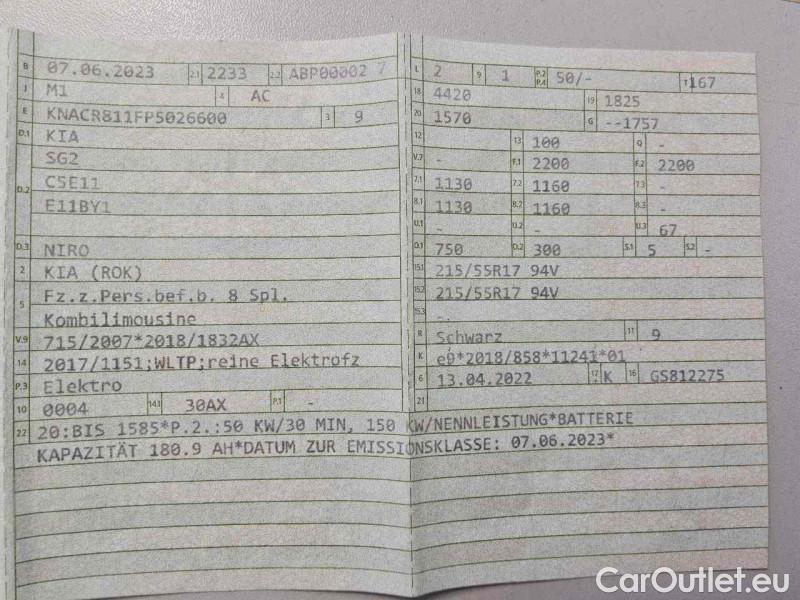 B 07.06.2023 2.1 2233 2.2 ABP00002 7
J M1 4 AC
E KNACR811FP5026600 3 9
D.1 KIA
SG2
D.2 C5E11
E11BY1
D.3 NIRO
2 KIA (ROK)
5 Fz.z.Pers.bef.b. 8 Spl.
Kombilimousine
V.9 715/2007*2018/1832AX
14 2017/1151;WLTP;reine Elektrofz
P.3 Elektro
10 0004 14.1 30AX P.1 -
L 2 9 1 P.2 P.4 50/- T 167
18 4420 19 1825
20 1570 G --1757
12 13 100 Q -
V.7 - F.1 2200 F.2 2200
7.1 1130 7.2 1160 7.3 -
8.1 1130 8.2 1160 8.3 -
U.1 - U.2 - U.3 67
O.1 750 O.2 300 S.1 5 S.2 -
15.1 215/55R17 94V
15.2 215/55R17 94V
15.3 -
R Schwarz 11 9
K e9*2018/858*11241*01
6 13.04.2022 17 K 16 GS812275
21
22 20:BIS 1585*P.2.:50 KW/30 MIN, 150 KW/NENNLEISTUNG*BATTERIE
KAPAZITÄT 180.9 AH*DATUM ZUR EMISSIONSKLASSE: 07.06.2023*
CarOutlet.eu